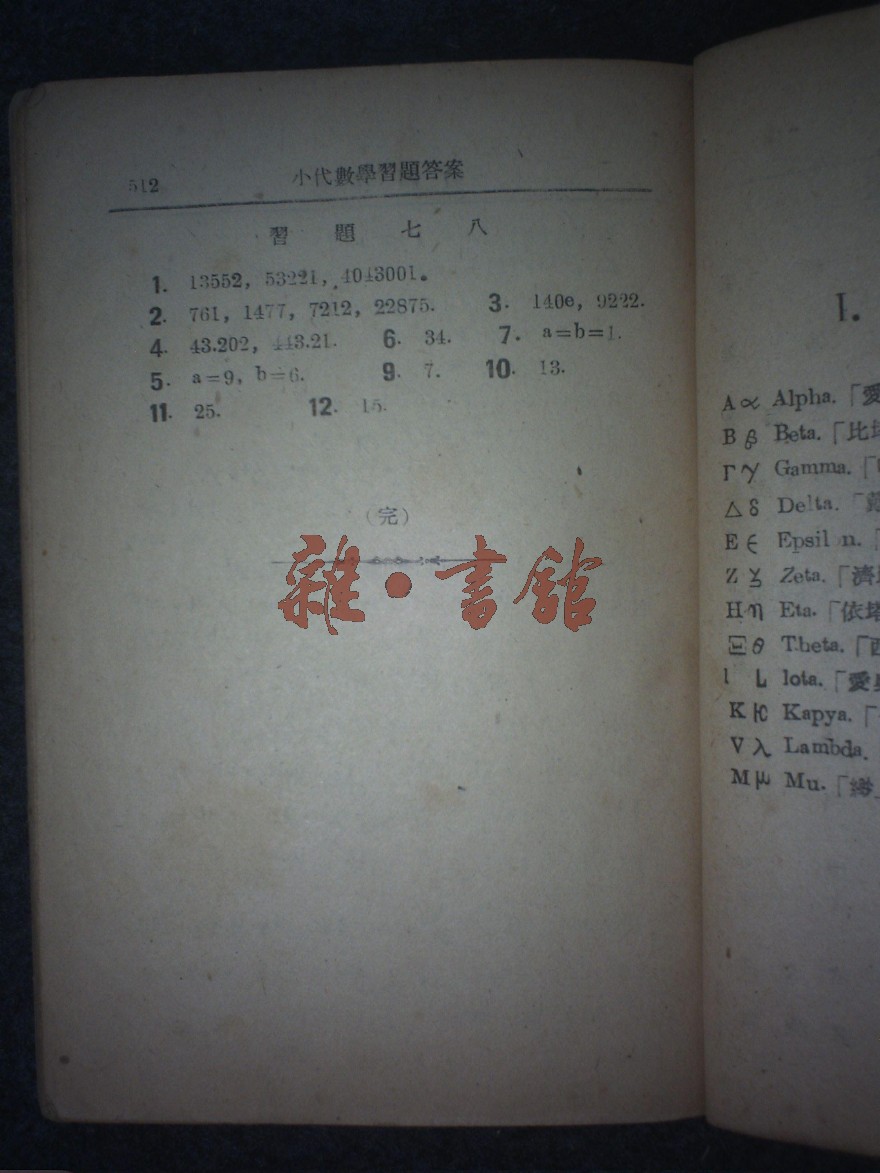 512 小代數學習題答案
習題七八
1. 13552, 53221, 4043001.
2. 761, 1477, 7212, 22875. 3. 140e, 9222.
4. 43.202, 443.21. 6. 34. 7. a=b=1.
5. a=9, b=6. 9. 7. 10. 13.
11. 25. 12. 15.
(完)
雜·書館
I.
Α α Alpha.「愛
Β β Beta.「比塔
Γ γ Gamma.「
Δ δ Delta.「
Ε ϵ Epsil n.「
Ζ ζ Zeta.「濟
Η η Eta.「依塔
Ξ θ Theta.「西
I ι Iota.「愛奧
Κ κ Kapya.「
V λ Lambda.
Μ μ Mu.「